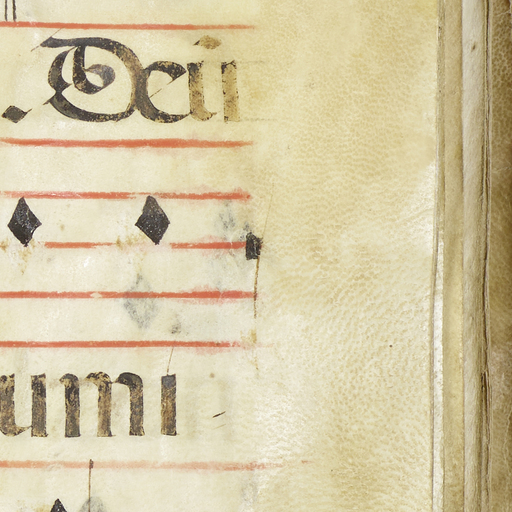 . Dein
umi